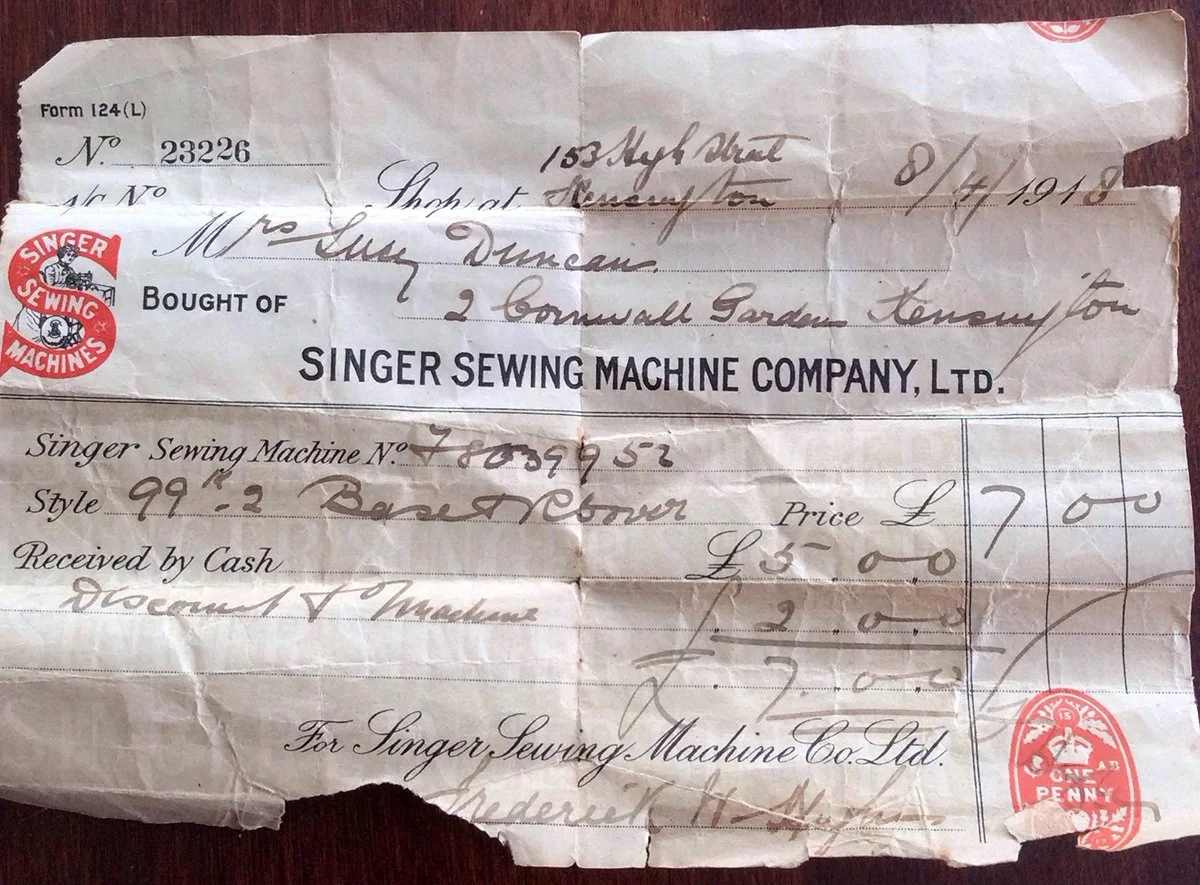 Form 124(L)
No. 23226
153 High Street
8/4/1918
A/C No
Shop at Kensington
Mrs Lucy Duncan
SINGER
SEWING
MACHINES
BOUGHT OF
2 Cornwall Gardens Kensington
SINGER SEWING MACHINE COMPANY, LTD.
Singer Sewing Machine No. Y8039952
Style 99K-2 Base & Cover Price £ 7 0 0
Received by Cash £ 5.0.0
Discount Machine £. 2.0.0
£. 7.0.0
For Singer Sewing Machine Co. Ltd.
Frederick H.
ONE
PENNY